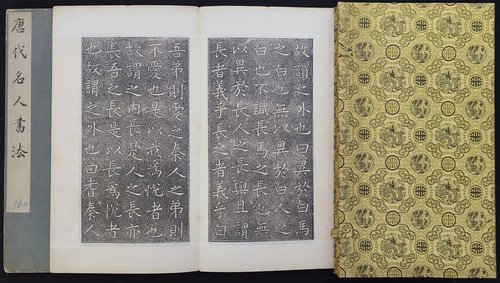 故謂之外也曰異於白馬
之白也無以異於白人之
白也不識長馬之長也無
以異於長人之長與且謂
長者義乎長之者義乎曰
吾弟則愛之秦人之弟則
不愛也是以我為悅者也
故謂之內長楚人之長亦
長吾之長是以長為悅者
也故謂之外也曰耆秦人
唐代名人書法